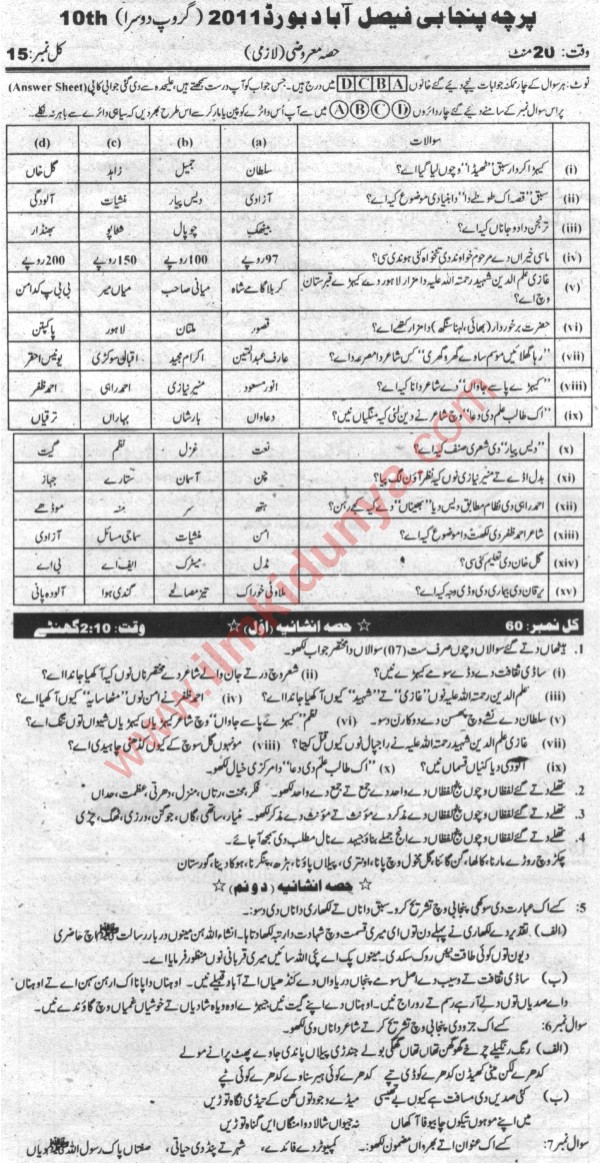 پرچہ پنجابی فیصل آباد بورڈ 2011 (گروپ دوسرا) 10th
وقت: 20 منٹ حصہ معروضی (لازمی) کل نمبر: 15
نوٹ: ہر سوال کے چار ممکنہ جوابات نیچے دیے گئے خانوں A B C D میں درج ہیں۔ جس جواب کو آپ درست سمجھتے ہیں، علیحدہ سے دی گئی جوابی کاپی (Answer Sheet)
پر اس سوال نمبر کے سامنے دیے گئے چار دائروں A B C D میں سے آپ اُس دائرے کو پین یا مارکر سے اس طرح بھر دیں کہ سیاہی دائرے سے باہر نہ نکلے۔
سوالات (a) (b) (c) (d)
(i) کیہڑا کردار سبق "ٹھیڈا" وچوں لیا گیا اے؟ سلطان جمیل زاہد گل خاں
(ii) سبق "قصہ اک طوطے دا" دا بنیادی موضوع کیہ اے؟ آزادی دیس پیار منشیات آلودگی
(iii) ترنجن دا دوجا ناں کیہ اے؟ بیٹھک چوپال بھنڈار
(iv) ماسی خیراں دے مرحوم خاوند دی تنخواہ کنی ہوندی سی؟ 97 روپے 100 روپے 150 روپے 200 روپے
(v) غازی علم الدین شہید رحمتہ اللہ علیہ دا مزار لاہور دے کیہڑے قبرستان وچ اے؟ کربلا گامے شاہ میانی صاحب میاں میر بی بی پاکدامن
(vi) حضرت برخوردار (بھائی لہنا سنگھ) دا مزار کتھے اے؟ قصور ملتان لاہور پاکپتن
(vii) "رہا گھلائیں موسم ساوے گھرو گھری" کس شاعر دا مصرعہ اے؟ عارف عبدالمتین اکرام مجید اقبال سوکڑی یونس احقر
(viii) "کیہڑے پاسے جاواں" دے شاعر دا ناں کیہ اے؟ انور مسعود منیر نیازی احمد راہی احمد ظفر
(ix) "اک طالب علم دی دعا" وچ شاعر نے دین لئی کیہ منگیاں نیں؟ دعاواں بارشاں بہاراں ترقیاں
(x) "دیس پیار" دی شعری صنف کیہ اے؟ نعت غزل نظم گیت
(xi) بدل اڈے تے منیر نیازی نوں کیہ نظر آؤن لگ پیا؟ چن آسمان ستارے جہاز
(xii) احمد راہی دی نظم مطابق دیس دیا "بھیناں" دے کیہ سجے رہن؟ ہتھ سر منہ موڈھے
(xiii) شاعر احمد ظفر دی لکھت دا موضوع کیہ اے؟ امن منشیات سماجی مسائل آزادی
(xiv) گل خان دی تعلیم کنی سی؟ مڈل میٹرک ایف اے بی اے
(xv) یرقان دی بیماری دی وڈی وجہ کیہ اے؟ ملاوٹی خوراک تیز مصالحے گندی ہوا آلودہ پانی
کل نمبر: 60 ☆ حصہ انشائیہ (اوّل) ☆ وقت: 2:10 گھنٹے
1. ہیٹھاں دتے گئے سوالاں وچوں صرف ست (07) سوالاں دا مختصر جواب لکھو۔
(i) ساڈی ثقافت دے وڈے سومے کیہڑے نیں؟ (ii) شعر وچ ورتے جان والے شاعر دے مختصر ناں نوں کیہ آکھیا جاندا اے؟
(iii) علم الدین رحمتہ اللہ علیہ نوں "غازی" تے "شہید" کیوں آکھیا جاندا اے؟ (iv) احمد ظفر نے امن نوں "مٹھا سایہ" کیوں آکھیا اے؟
(v) سلطان دے نشے وچ پھسن دے دو کارن دسو۔ (vi) نظم "کیہڑے پاسے جاواں" وچ شاعر کیہڑیاں کیہڑیاں شیواں توں تنگ اے؟
(vii) غازی علم الدین شہید رحمتہ اللہ علیہ نے راجپال نوں کیوں قتل کیتا؟ (viii) مونہوں گل سوچ کے کیوں کڈھنی چاہیدی اے؟
(ix) آلودگی دیا کنیاں قسماں نیں؟ (x) "اک طالب علم دی دعا" دا مرکزی خیال لکھو۔
2. تھلے دتے گئے لفظاں وچوں پنج لفظاں دے واحد دے جمع تے جمع دے واحد لکھو۔ فکر، محنت، رتاں، منزل، دھرتی، عظمت، حداں
3. تھلے دتے گئے لفظاں وچوں پنج لفظاں دے مذکر دے مونث تے مونث دے مذکر لکھو۔ ساتھی، گاں، جوگن، درزی، ٹھگ، چڑی
4. تھلے دتے گئے لفظاں وچوں پنج لفظاں دے انج جملے بناؤ جیہدے نال مطلب دی سمجھ آ جائے۔
چکڑ وچ روڑے مارنا، کالھا، گن گانا، گل مول وچ پانا، اوتری، پیلاں پاؤنا، ہڑھ، پنگرنا، ہوکا دینا، گورستان
☆ حصہ انشائیہ (دونم) ☆
5: کسے اک عبارت دی سوکھی پنجابی وچ تشریح کرو۔ سبق دا ناں تے لکھاری دا ناں وی دسو:
(الف) تقدیر دے لکھاری نے پہلے دن توں ای میری قسمت وچ شہادت دا رتبہ لکھ دتا ہا۔ انشاءاللہ ہن مینوں دربار رسالت ﷺ وچ حاضری
دیون توں کوئی طاقت نہیں روک سکدی۔ مینوں پک اے پئی اللہ سائیں میری قربانی نوں منظور فرما لیا اے۔
(ب) ساڈی ثقافت تے وسیب دے اصل سومے پنجاں دریاواں دے کنڈھیاں اتے آباد قبیلے نیں۔ اوہناں دا اپنا اک رہن سہن اے تے اوہناں
دے صدیاں توں دلے آر ہے رسم تے رواج نیں۔ اوہناں دے اپنے گیت نیں جیہڑے اوہ دیاہ شادیاں تے خوشیاں غمیاں وچ گاؤندے نیں۔
سوال نمبر 6: کسے اک جزو دی پنجابی وچ تشریح کر کے شاعر دا ناں وی لکھو۔
(الف) رنگ رنگیلے چرخے گھوکن تھاں تھاں گھگی بولے چندڑی پیلاں پاندی جاوے پھٹ پرانے مولے
کدھرے لکن میٹی کھیڈن کدھرے کوڈی تپے کدھرے کوئی ہیر سناوے کدھرے کوئی ٹپے
(ب) کئی صدیں دی مسافت ہے کیوں بے فیصی میڈے وجود توں گھن کے تیڈی نگاہ توڑیں
میں اپنے موہوں تیکوں چا بیوفا آکھاں نہ جیواں شالا دا منگاں ایں گناہ توڑیں
سوال نمبر 7: کسے اک عنوان اتے بھرواں مضمون لکھو۔ کمپیوٹر دے فائدے، شہر تے پنڈ دی حیاتی، صفتاں پاک رسول اللہ ﷺ ہویاں
www.ilmkidunya.com